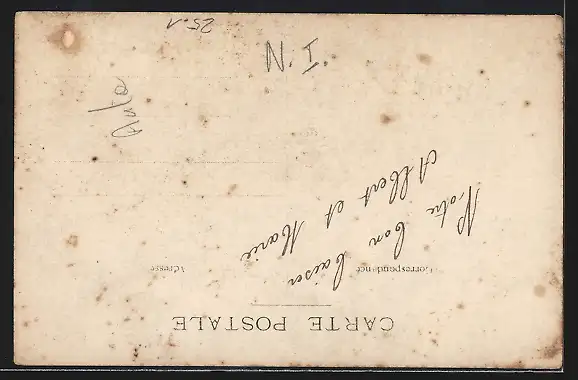 CARTE POSTALE
Correspondance
Adresse
Notre bon baiser
Albert et Marie
Auto
N. I.
25.1